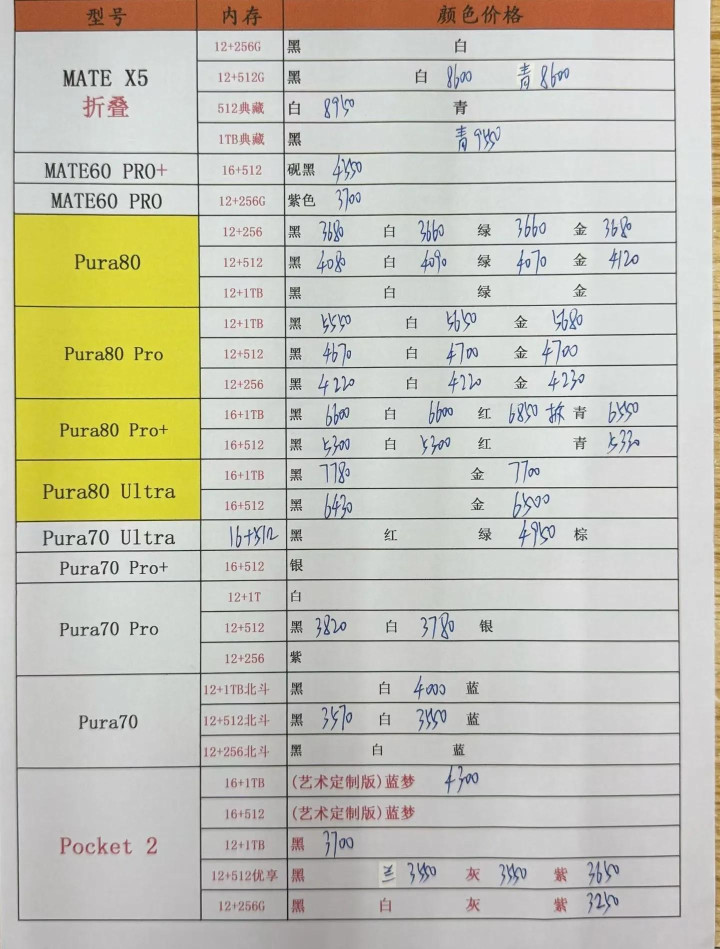 型号 内存 颜色价格
12+256G 黑 白
MATE X5 折叠 12+512G 黑 白 8600 青 8600
512典藏 白 8950 青
1TB典藏 黑 青 9550
MATE60 PRO+ 16+512 砚黑 4350
MATE60 PRO 12+256G 紫色 3700
12+256 黑 3680 白 3660 绿 3660 金 3680
Pura80 12+512 黑 4080 白 4090 绿 4070 金 4120
12+1TB 黑 白 绿 金
12+1TB 黑 5550 白 5650 金 5680
Pura80 Pro 12+512 黑 4670 白 4700 金 4700
12+256 黑 4220 白 4220 金 4230
Pura80 Pro+ 16+1TB 黑 6600 白 6600 红 6850 青 6550
16+512 黑 5300 白 5300 红 青 5330
Pura80 Ultra 16+1TB 黑 7780 金 7700
16+512 黑 6430 金 6500
Pura70 Ultra 16+512 黑 红 绿 4950 棕
Pura70 Pro+ 16+512 银
12+1T 白
Pura70 Pro 12+512 黑 3820 白 3780 银
12+256 紫
12+1TB北斗 黑 白 4000 蓝
Pura70 12+512北斗 黑 3570 白 3550 蓝
12+256北斗 黑 白 蓝
16+1TB (艺术定制版)蓝梦 4300
16+512 (艺术定制版)蓝梦
Pocket 2 12+1TB 黑 3700
12+512优享 黑 兰 3550 灰 3550 紫 3650
12+256G 黑 白 灰 紫 3250